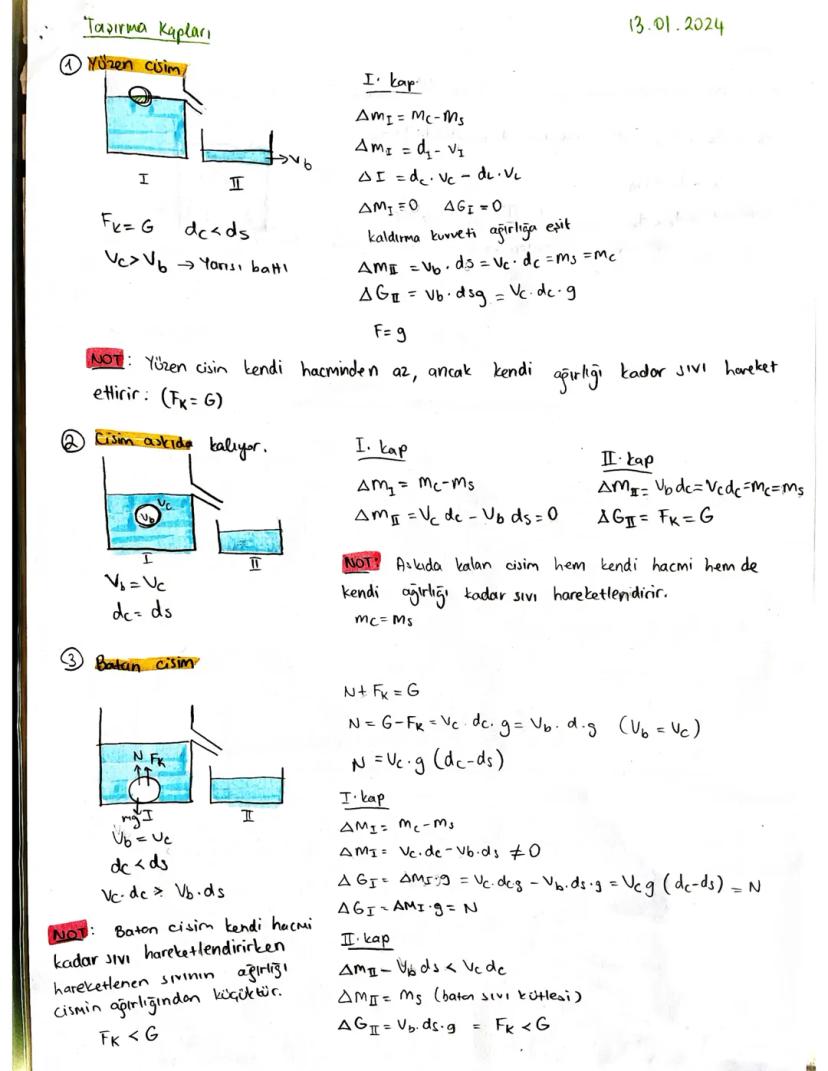 Taşırma Kapları
13.01.2024
① Yüzen cisim
I
II
Vb
FK = G dc < ds
Vc > Vb → Yarısı battı
I. kap
ΔmI = mc - ms
ΔmI = d1 - VI
ΔI = dc . Vc - dL . VL
ΔMI = 0 ΔGI = 0
kaldırma kuvveti ağırlığa eşit
ΔmII = Vb . ds = Vc . dc = ms = mc
ΔGII = Vb . dsg = Vc . dc . g
F = g
NOT: Yüzen cisin kendi hacminden az, ancak kendi ağırlığı kadar sıvı hareket
ettirir: (FK = G)
② Cisim askıda kalıyor.
Vc
Vb
I
II
Vb = Vc
dc = ds
I. kap
ΔmI = mc - ms
ΔmII = Vc dc - Vb ds = 0
II. kap
ΔmII = Vb dc = Vc dc = mc = ms
ΔGII = FK = G
NOT: Askıda kalan cisim hem kendi hacmi hem de
kendi ağırlığı kadar sıvı hareketlendirir.
mc = ms
③ Batan cisim
N FK
mg I
II
Vb = Vc
dc < ds
Vc . dc > Vb . ds
N + FK = G
N = G - FK = Vc . dc . g = Vb . d . g (Vb = Vc)
N = Vc . g (dc - ds)
I. kap
ΔMI = mc - ms
ΔMI = Vc . dc - Vb . ds ≠ 0
ΔGI = ΔMI . g = Vc . dcg - Vb . ds . g = Vcg (dc - ds) = N
ΔGI = ΔMI . g = N
II. kap
ΔmII - Vb ds < Vc dc
ΔMII = ms (batan sıvı kütlesi)
ΔGII = Vb . ds . g = FK < G
NOT: Batan cisim kendi hacmi
kadar sıvı hareketlendirirken
hareketlenen sıvının ağırlığı
cismin ağırlığından küçüktür.
FK < G